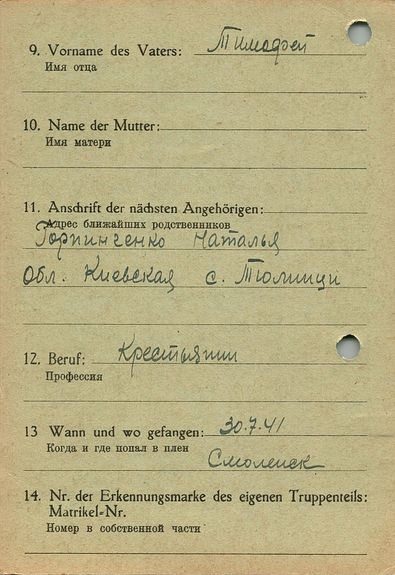 9. Vorname des Vaters: Тимофей
Имя отца
10. Name der Mutter:
Имя матери
11. Anschrift der nächsten Angehörigen:
Адрес ближайших родственников
Горпинченко Наталья
Обл. Киевская с.
12. Beruf: Крестьянин
Профессия
13 Wann und wo gefangen: 30.7.41
Когда и где попал в плен
Смоленск
14. Nr. der Erkennungsmarke des eigenen Truppenteils:
Matrikel-Nr.
Номер в собственной части